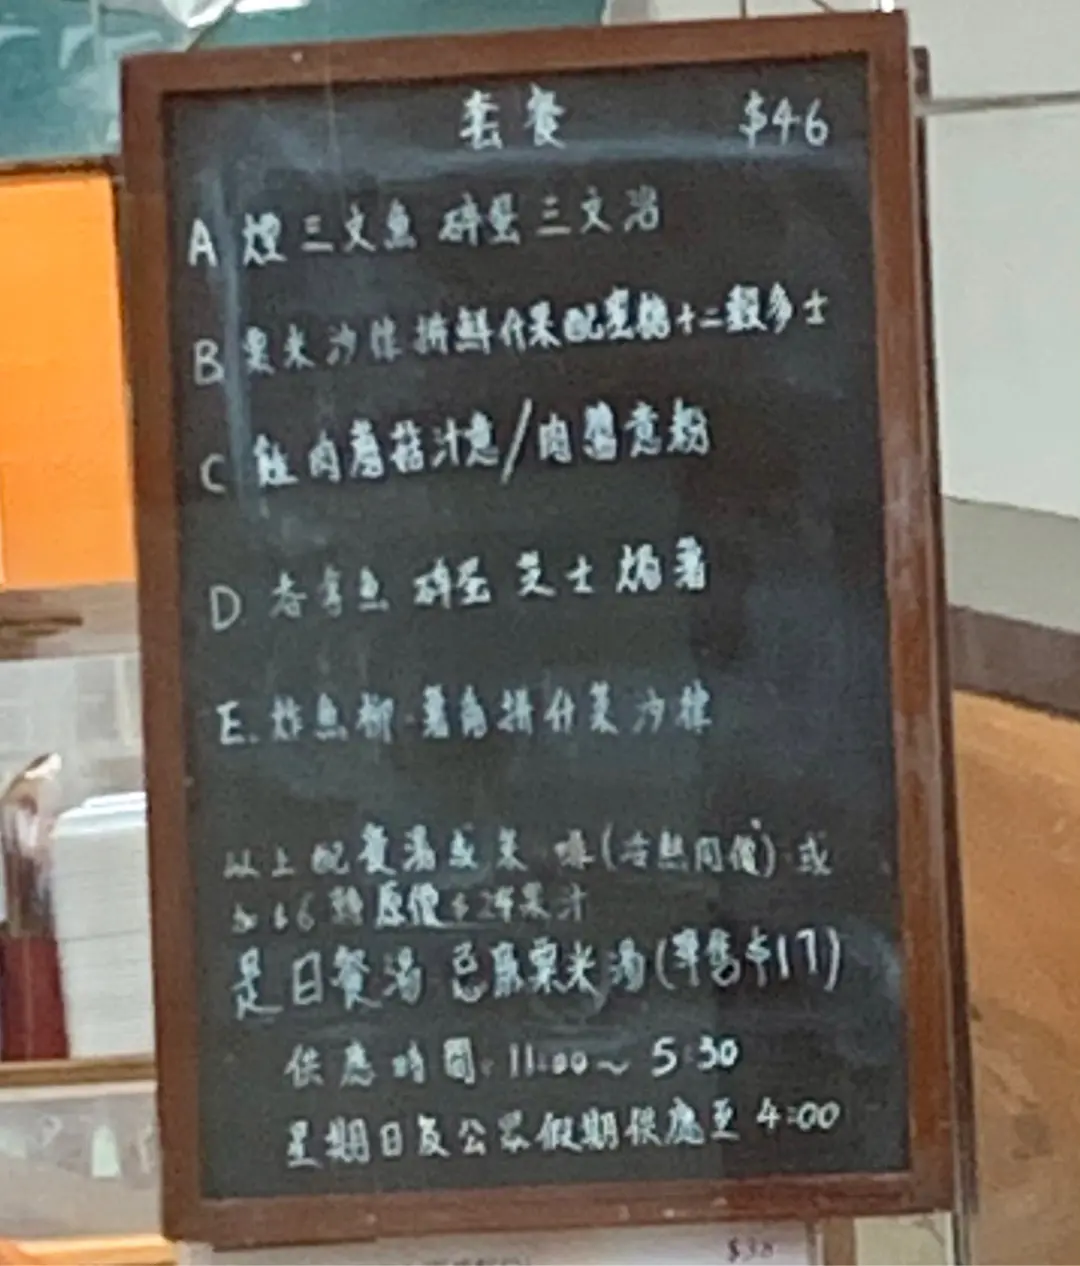 套餐 $46
A 煙三文魚碎蛋三文治
B 粟米沙律拼鮮什果配蜜糖十二穀多士
C 肉蘑菇汁意/肉醬意粉
D 吞拿魚 碎蛋 芝士焗薯
E. 炸魚柳 薯角拼什菜沙律
以上配餐湯或茶 啡(冷熱同價) 或
$6 原價$24果汁
是日餐湯 忌廉粟米湯(零售$17)
供應時間: 11:00~ 5:30
星期日及公眾假期供應至 4:00
$38